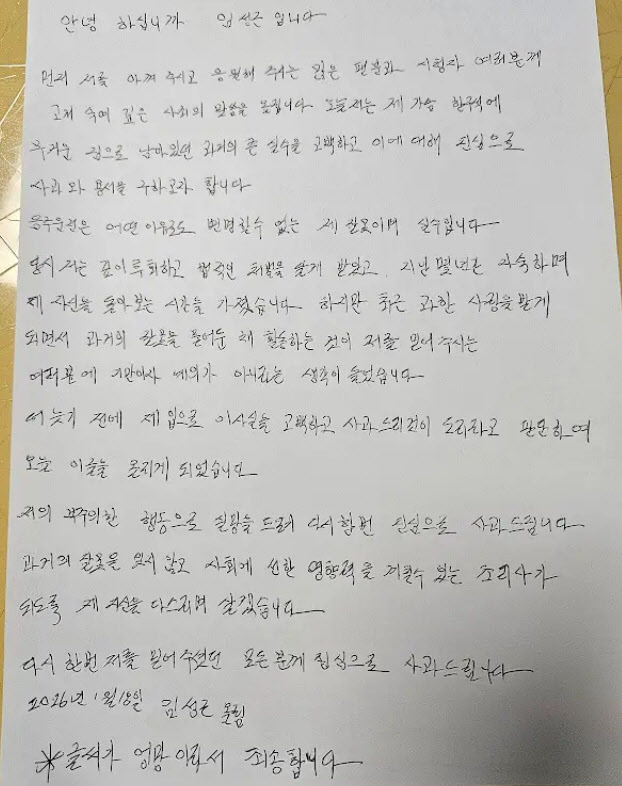 안녕 하십니까 임성근 입니다
먼저 저를 아껴 주시고 응원해 주시는 많은 팬분과 시청자 여러분께
고개 숙여 깊은 사죄의 말씀을 올립니다 오늘 저는 제 가슴 한구석에
무거운 짐으로 남아있던 과거의 큰 실수를 고백하고 이에 대해 진심으로
사과와 용서를 구하고자 합니다
음주운전은 어떤 이유로도 변명할수 없는 제 잘못이며 실수입니다
당시 저는 깊이 후회하고 법적인 처벌을 달게 받았고, 지난 몇년간 자숙하며
제 자신을 돌아보는 시간을 가졌습니다 하지만 최근 과한 사랑을 받게
되면서 과거의 잘못을 묻어둔 채 활동하는 것이 저를 믿어 주시는
여러분에 기만이자 예의가 아니라는 생각이 들었습니다
더 늦기 전에 제 입으로 이사실을 고백하고 사과 드리것이 도리라고 판단하여
오늘 이글을 올리게 되었습니다
저의 부주의한 행동으로 실망을 드려 다시한번 진심으로 사과드립니다
과거의 잘못을 잊지 않고 사회에 선한 영향력을 끼칠수 있는 조리사가
되도록 제 자신을 다스리며 살겠습니다
다시 한번 저를 믿어 주셨던 모든 분께 진심으로 사과드립니다
2026년 1월 18일 임성근 올림
※글씨가 엉망이라서 죄송합니다